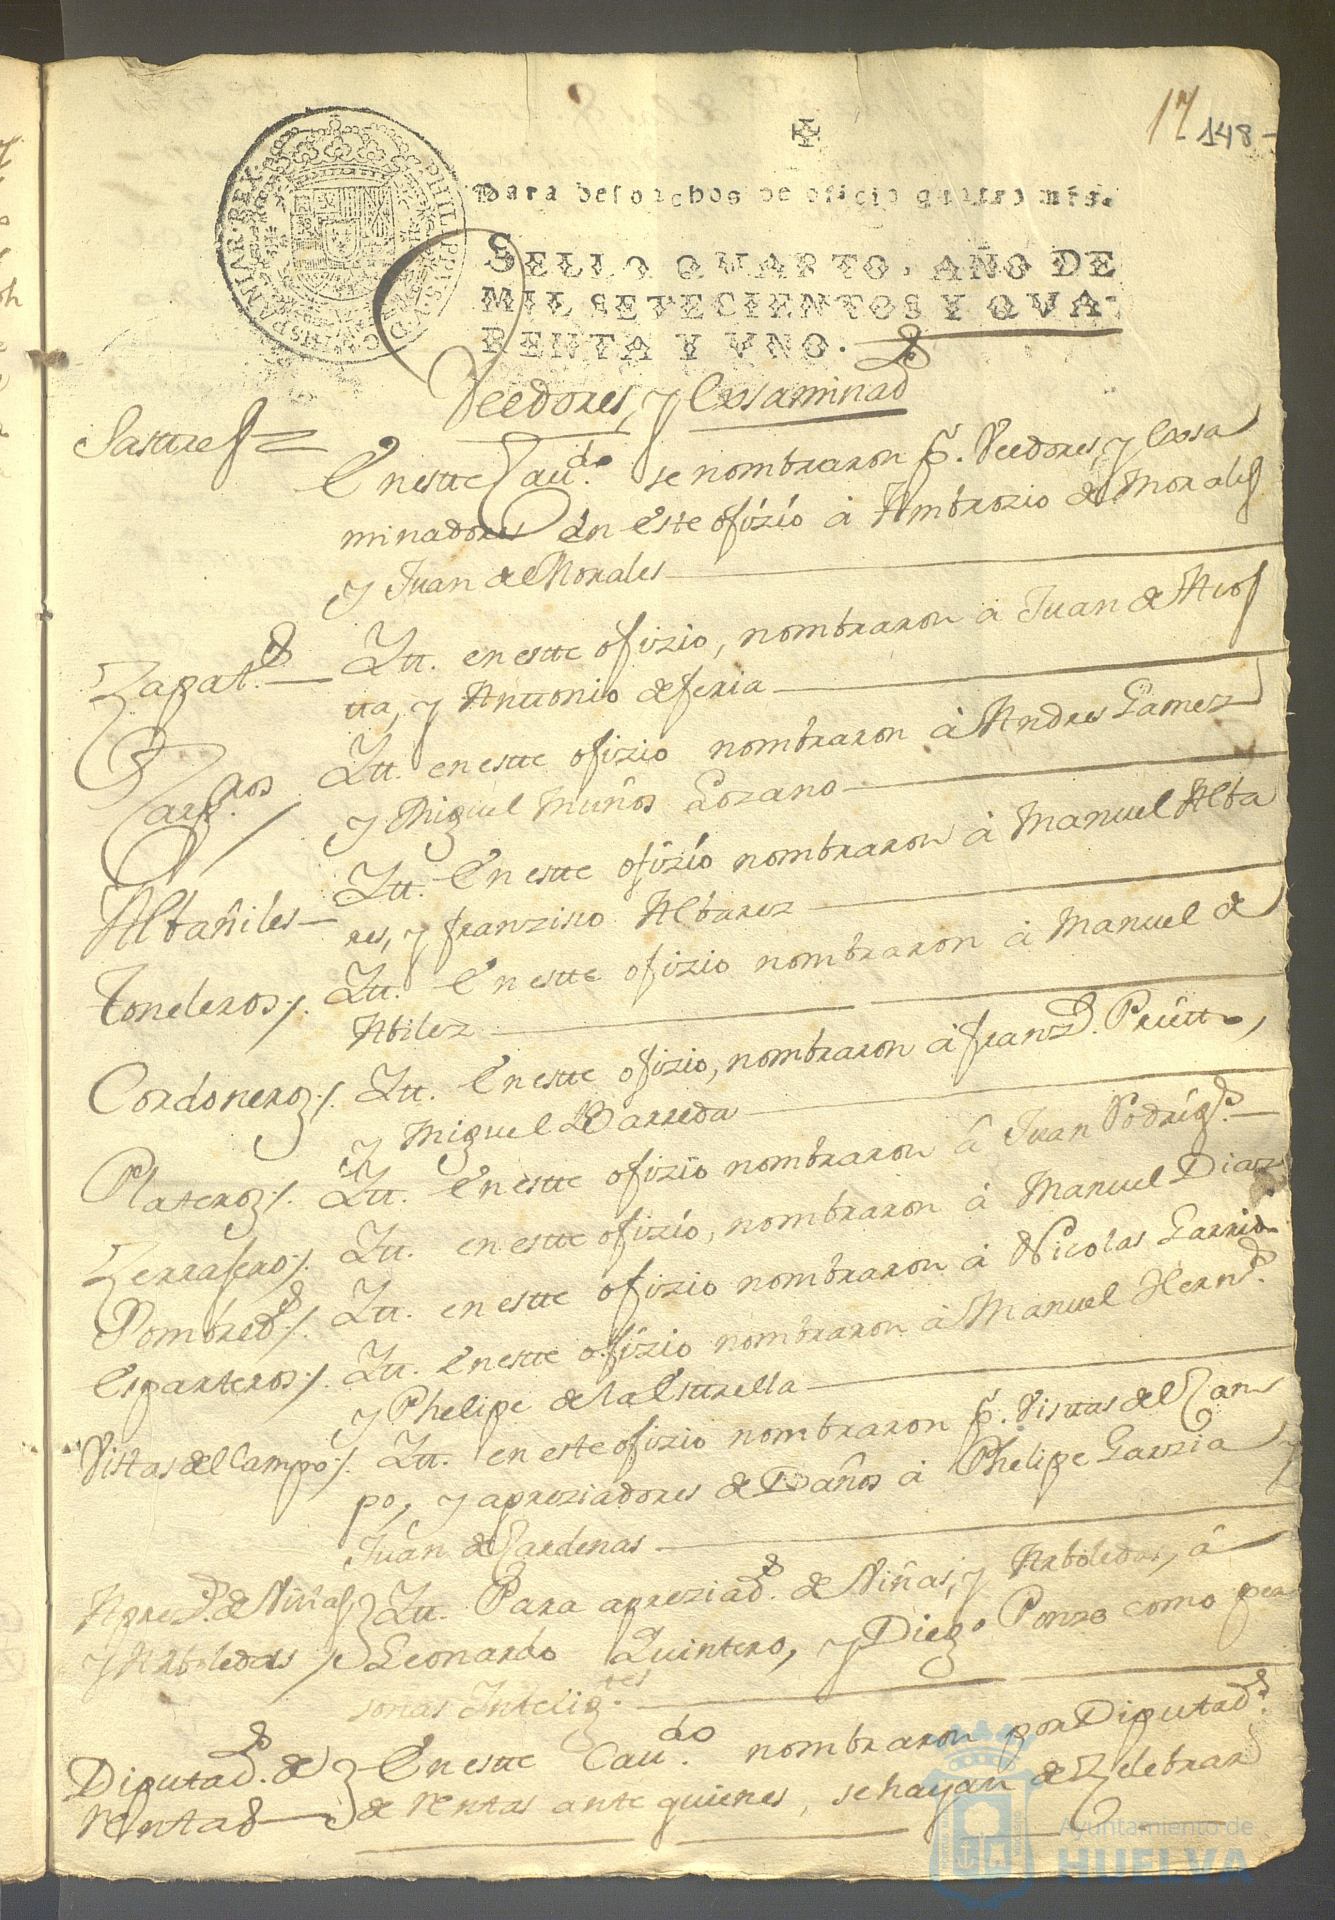 17 148-
PHILIPPVS V D G HISPANIAR REX
Para despachos de oficio quatro mrs.
SELLO QVARTO, AÑO DE
MIL SETECIENTOS Y QVA-
RENTA Y VNO.
Veedores, y Exsaminad.s
Sastres= En estte Cau.do se nombraron p. Veedores y Exsa
minadores en este ofizio à Ambrozio de Morales
y Juan de Morales
Zapat.s Itt. en estte ofizio, nombraron à Juan de Acos
tta, y Anttonio de feria
Carp.ros Itt. en estte ofizio nombraron à Andres Gamez
y Miguel Muños Lozano
Albañiles Itt. En estte ofizio nombraron à Manuel Alba
res, y franzisco Albarez
Toneleros Itt. En estte ofizio nombraron à Manuel de
Abilez
Cordoneros Itt. En estte ofizio, nombraron à franz.o Prietto,
y Miguel Barreda
Plateros Itt. En estte ofizio nombraron à Juan Rodrig.s
Zerrajeros Itt. en estte ofizio, nombraron à Manuel Diaz
Itt. en estte ofizio nombraron à Nicolas Garrido
Esparteros Itt. En estte ofizio nombraron à Manuel Hern.s
y Phelipe de la Esttrella
Vistas del Campo Itt. en este ofizio nombraron p. Visttas del Cam
po, y apreziadores de Daños à Phelipe Garzia y
Juan de Cardenas
Aprez.s de Viñas Itt. Para apreziad.s de Viñas, y Arboledas, à
y Arboledas Leonardo Quintero, y Diego Ponze como per
sonas Intelig.tes
Diputad.s de En estte Cau.do nombraron por Diputad.s
rentas de rentas ante quienes, se hayan de Zelebrar
Ayuntamiento de
HUELVA